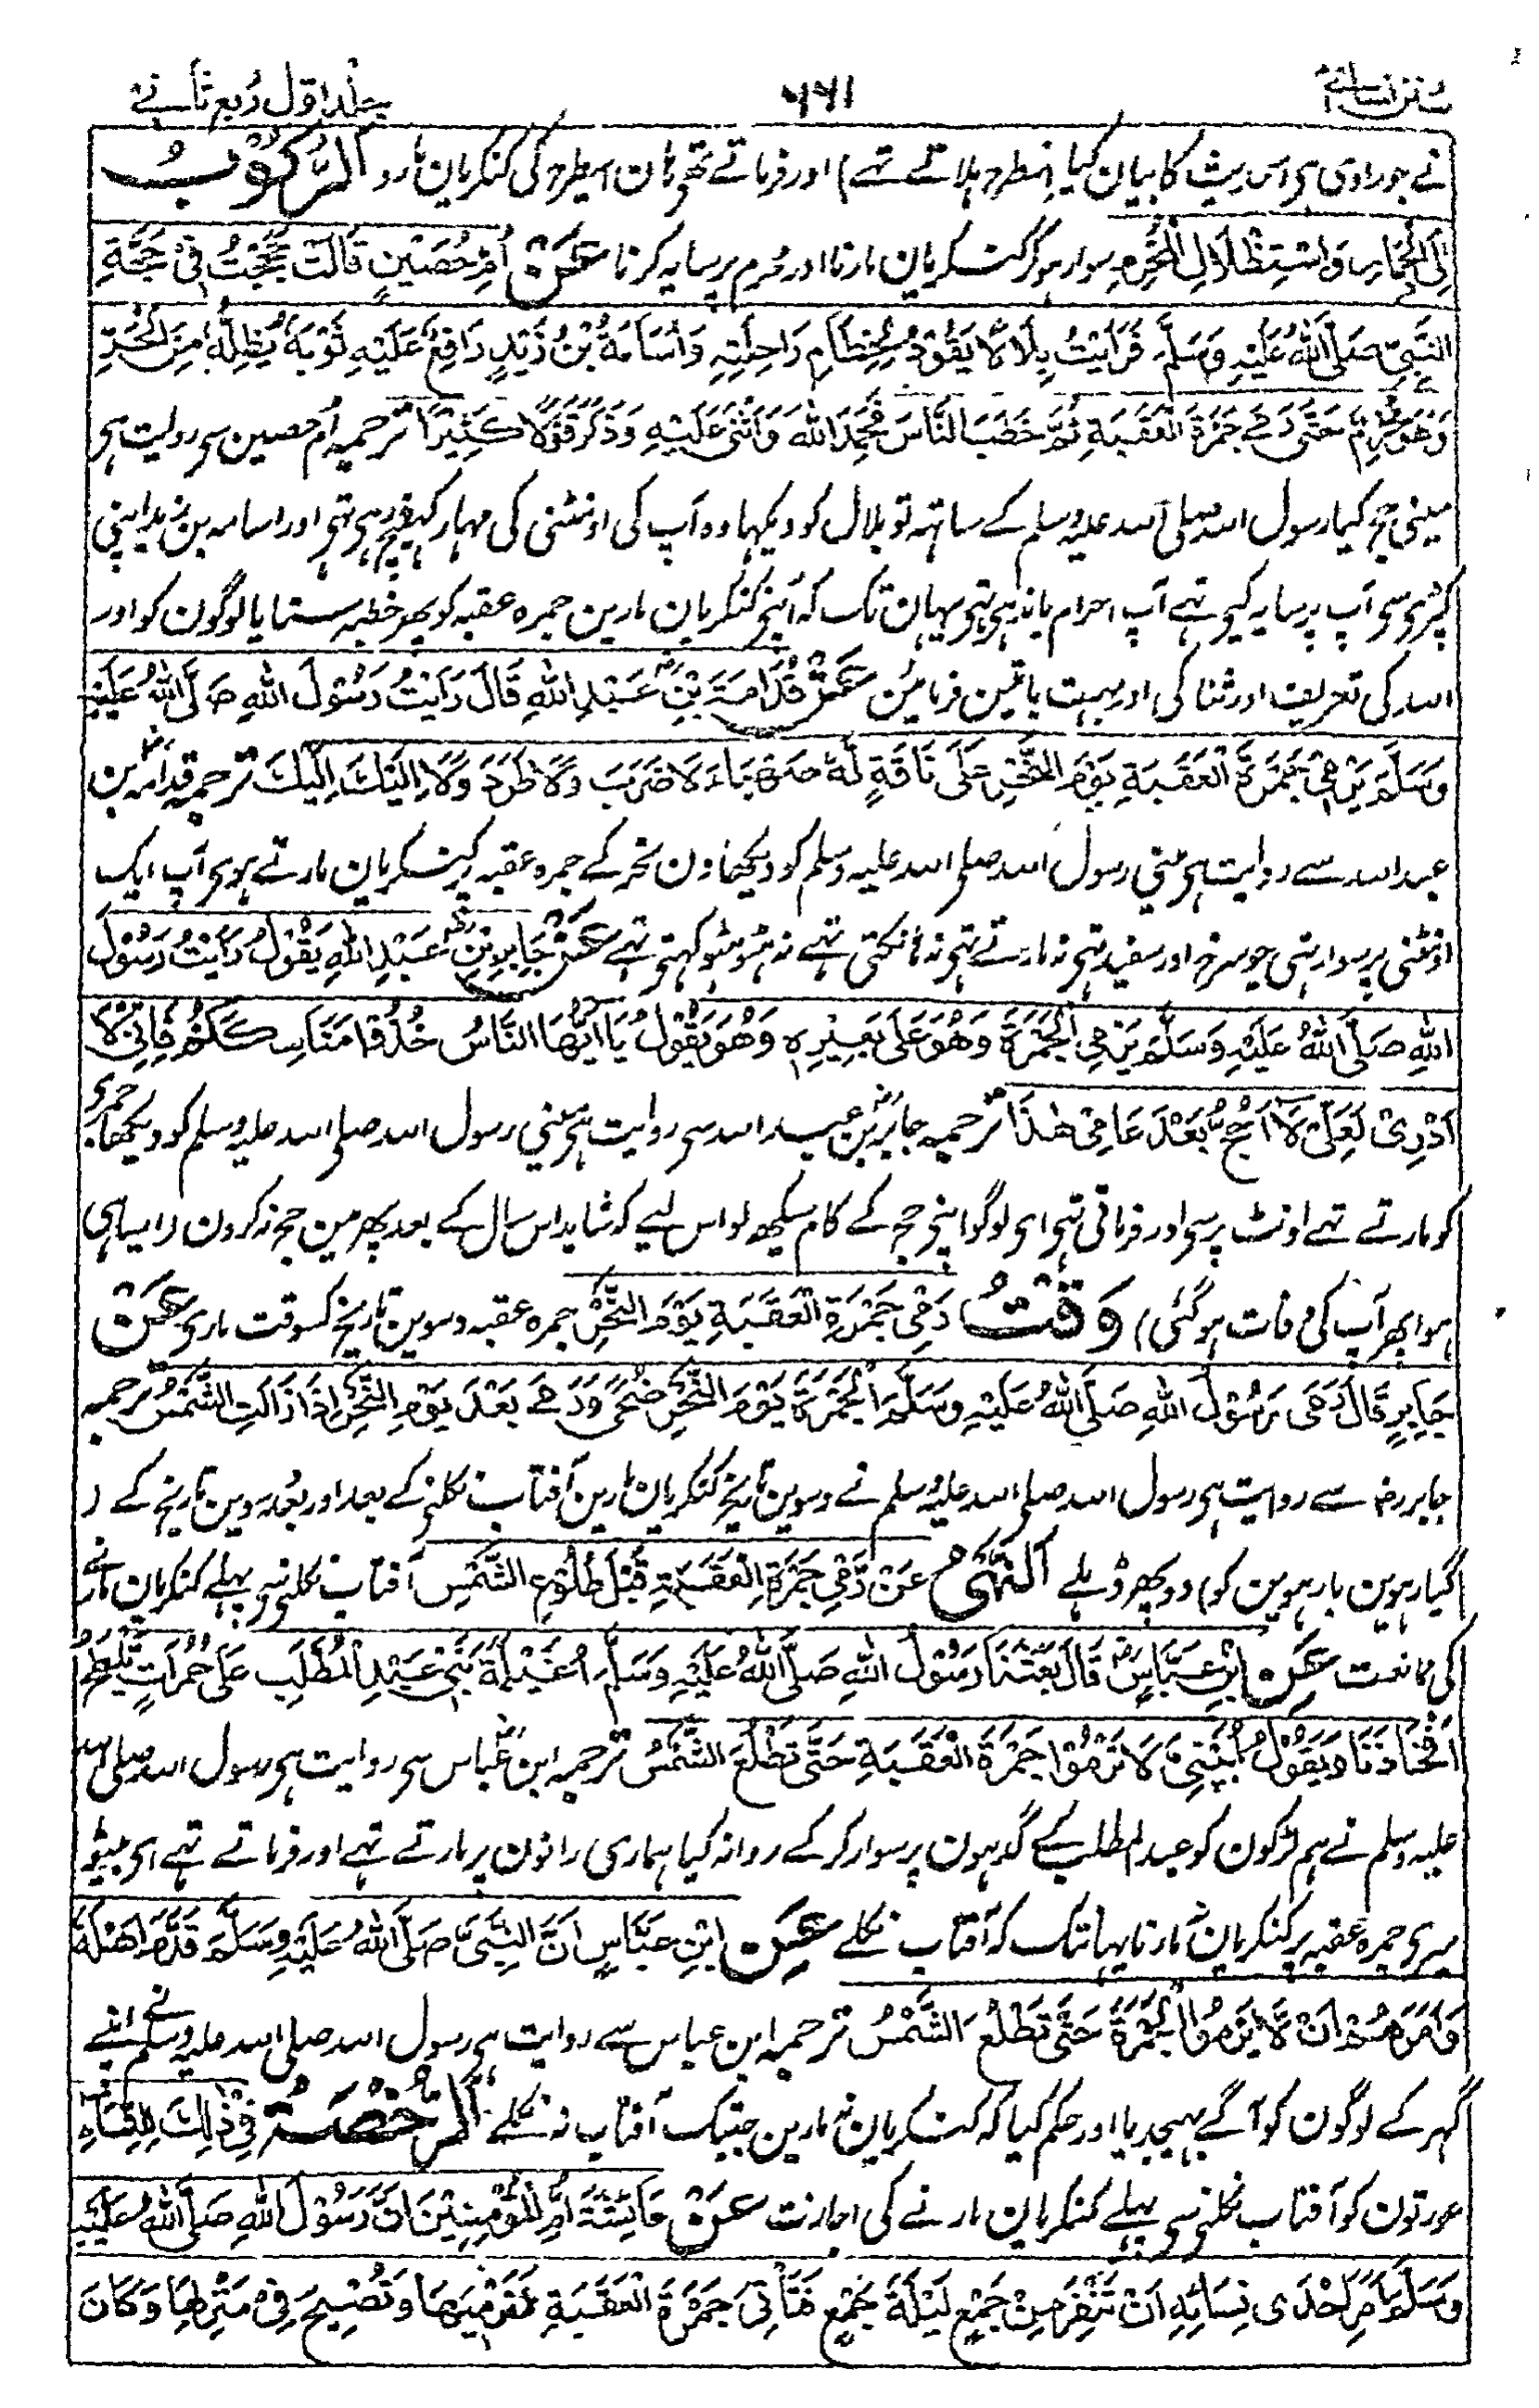 سنن نسائے ۶۶۱ جلد اول ربع ثانے
نے جو راوی ہی اس حدیث کا بیان کیا (جسطرح ہلاتے تھے) اور فرماتے تھی ہان اسیطرح کی کنکریان مارو اَلرُّكُوْبُ
اِلَى الْجِمَارِ وَاسْتِظْلَالِ الْمُحْرِمِ سوار ہو کر کنکریان مارنا اور محرم پر سایہ کرنا عَنْ اُمِّ حُصَيْنٍ قَالَتْ حَجَجْتُ فِيْ حَجَّةِ
النَّبِيِّ صَلَّى اللهُ عَلَيْهِ وَسَلَّمَ فَرَأَيْتُ بِلَالًا يَقُوْدُ بِخِطَامِ رَاحِلَتِهِ وَاُسَامَةُ بْنُ زَيْدٍ رَافِعٌ عَلَيْهِ ثَوْبَهُ يُظِلُّهُ مِنَ الْحَرِّ
وَهُوَ مُحْرِمٌ حَتّٰى رَمٰى جَمْرَةَ الْعَقَبَةِ ثُمَّ خَطَبَ النَّاسَ فَحَمِدَ اللهَ وَاَثْنٰى عَلَيْهِ وَذَكَرَ قَوْلًا كَثِيْرًا ترجمہ ام حصین سی روایت ہی
مینی حج کیا رسول اللہ صلی اللہ علیہ وسلم کے ساتھ تو بلال کو دیکھا وہ آپ کی اونٹنی کی مہار کھینچ رہی تھی اور اسامہ بن زید اپنی
کپڑی سی آپ پر سایہ کیی تھے آپ احرام باندہی تھی یہان تک کہ آپنی کنکریان مارین جمرہ عقبہ کو پھر خطبہ سنایا لوگون کو اور
اللہ کی تعریف اور ثنا کی اور بہت باتین فرمائین عَنْ قُدَامَةَ بْنِ عَبْدِ اللهِ قَالَ رَاَيْتُ رَسُوْلَ اللهِ صَلَّى اللهُ عَلَيْهِ
وَسَلَّمَ يَرْمِيْ جَمْرَةَ الْعَقَبَةِ يَوْمَ النَّحْرِ عَلٰى نَاقَةٍ لَّهُ صَهْبَاءَ لَا ضَرَبَ وَلَا طَرَدَ وَلَا اِلَيْكَ اِلَيْكَ ترجمہ قدامہ بن
عبد اللہ سے روایت ہی مینی رسول اللہ صلی اللہ علیہ وسلم کو دیکھا دن نحر کے جمرہ عقبہ پر کنکریان مارتے ہوی آپ ایک
اونٹنی پر سوار تھی جو سرخ اور سفید تھی نہ مارتے تھی نہ ہانکتی تھے نہ ہٹو ہٹو کہتی تھے عَنْ جَابِرِ بْنِ عَبْدِ اللهِ يَقُوْلُ رَاَيْتُ رَسُوْلَ
اللهِ صَلَّى اللهُ عَلَيْهِ وَسَلَّمَ يَرْمِي الْجَمْرَةَ وَهُوَ عَلٰى بَعِيْرِهِ وَهُوَ يَقُوْلُ يَا اَيُّهَا النَّاسُ خُذُوْا مَنَاسِكَكُمْ فَاِنِّيْ لَا
اَدْرِيْ لَعَلِّيْ لَا اَحُجُّ بَعْدَ عَامِيْ هٰذَا ترجمہ جابر بن عبد اللہ سی روایت ہی مینی رسول اللہ صلی اللہ علیہ وسلم کو دیکھا جمری
کو مارتے تھے اونٹ پر سی اور فرماتی تھی ای لوگو اپنی حج کے کام سیکھ لو اس لیے کہ شاید اس سال کے بعد پھر مین حج نہ کرون (ایسا ہی
ہوا پھر آپ کی وفات ہو گئی) وَقْتُ رَمْيِ جَمْرَةِ الْعَقَبَةِ يَوْمَ النَّحْرِ جمرہ عقبہ دسوین تاریخ کسوقت ماری عَنْ
جَابِرٍ قَالَ رَمٰى رَسُوْلُ اللهِ صَلَّى اللهُ عَلَيْهِ وَسَلَّمَ الْجَمْرَةَ يَوْمَ النَّحْرِ ضُحًى وَرَمٰى بَعْدَ يَوْمِ النَّحْرِ اِذَا زَالَتِ الشَّمْسُ ترجمہ
جابر رضہ سے روایت ہی رسول اللہ صلی اللہ علیہ وسلم نے دسوین تاریخ کنکریان مارین آفتاب نکلنی کے بعد اور بعد دسوین تاریخ کے (
گیارہوین بارہوین کو) دوپھر ڈہلے اَلنَّهْيُ عَنْ رَمْيِ جَمْرَةِ الْعَقَبَةِ قَبْلَ طُلُوْعِ الشَّمْسِ آفتاب نکلنی سی پہلے کنکریان مارنے
کی ممانعت عَنِ ابْنِ عَبَّاسٍ قَالَ بَعَثَنَا رَسُوْلُ اللهِ صَلَّى اللهُ عَلَيْهِ وَسَلَّمَ اُغَيْلِمَةَ بَنِيْ عَبْدِ الْمُطَّلِبِ عَلٰى حُمُرَاتٍ يَلْطَحُ
اَفْخَاذَنَا وَيَقُوْلُ اُبَيْنِيَّ لَا تَرْمُوْا جَمْرَةَ الْعَقَبَةِ حَتّٰى تَطْلُعَ الشَّمْسُ ترجمہ ابن عباس سی روایت ہی رسول اللہ صلی اللہ
علیہ وسلم نے ہم لڑکون کو عبد المطلب کے گدہون پر سوار کر کے روانہ کیا ہماری رانون پر مارتے تھے اور فرماتے تھے ای بیٹو
میری جمرہ عقبہ پر کنکریان نہ مارنا یہانتک کہ آفتاب نکلے عَنِ ابْنِ عَبَّاسٍ اَنَّ النَّبِيَّ صَلَّى اللهُ عَلَيْهِ وَسَلَّمَ قَدَّمَ اَهْلَهُ
وَاَمَرَهُمْ اَنْ لَّا يَرْمُوا الْجَمْرَةَ حَتّٰى تَطْلُعَ الشَّمْسُ ترجمہ ابن عباس سے روایت ہی رسول اللہ صلی اللہ علیہ وسلم نے اپنے
گھر کے لوگون کو آگے بھیجدیا اور حکم کیا کہ کنکریان نہ مارین جبتک آفتاب نہ نکلے اَلرُّخْصَةُ فِيْ ذٰلِكَ لِلنِّسَاءِ
عورتون کو آفتاب نکلنی سی پہلے کنکریان مارنے کی اجازت عَنْ عَائِشَةَ اُمِّ الْمُؤْمِنِيْنَ اَنَّ رَسُوْلَ اللهِ صَلَّى اللهُ عَلَيْهِ
وَسَلَّمَ اَمَرَ اِحْدٰى نِسَائِهِ اَنْ تَنْفِرَ مِنْ جَمْعٍ لَيْلَةَ جَمْعٍ فَتَأْتِيَ جَمْرَةَ الْعَقَبَةِ فَتَرْمِيَهَا وَتُصْبِحَ فِيْ مَنْزِلِهَا وَكَانَ